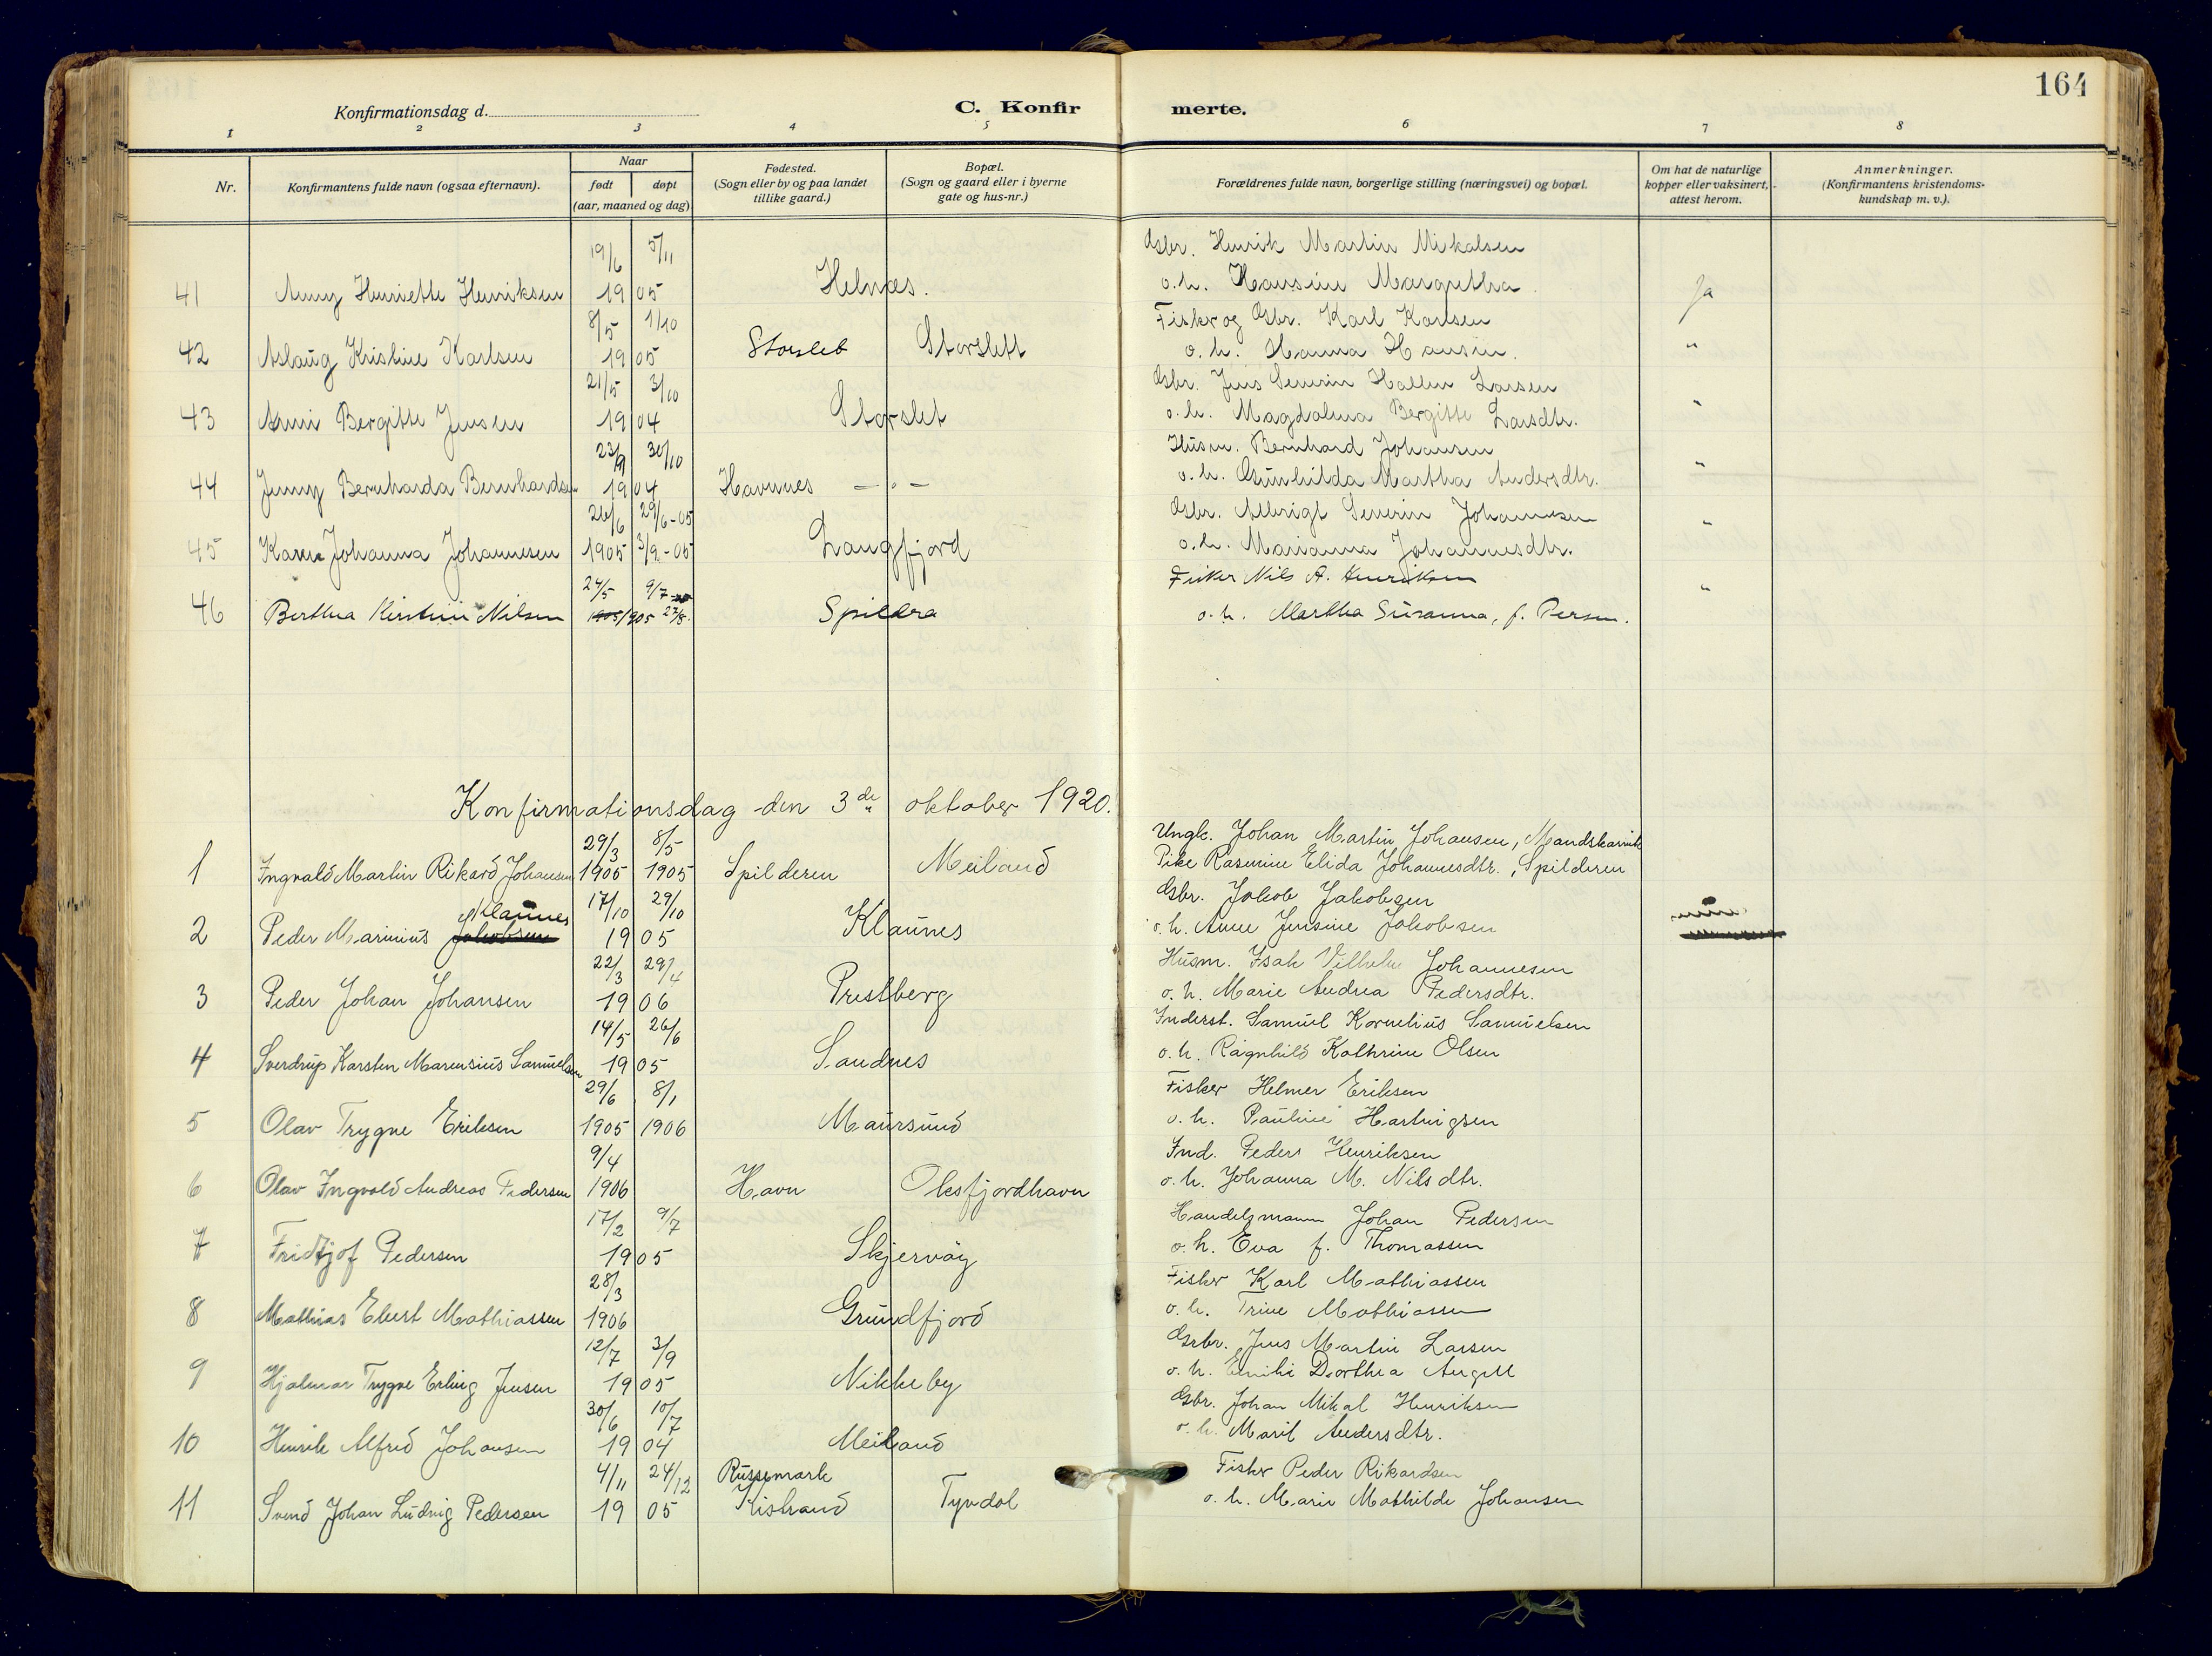 164
Konfirmationsdag d.
C. Konfir merte.
1 2 3 4 5 6 7 8
Nr.
Konfirmantens fulde navn (ogsaa efternavn).
Naar
født døpt
(aar, maaned og dag)
Fødested.
(Sogn eller by og paa landet
tillike gaard.)
Bopæl.
(Sogn og gaard eller i byerne
gate og hus-nr.)
Forældrenes fulde navn, borgerlige stilling (næringsvei) og bopæl.
Om hat de naturlige
kopper eller vaksinert,
attest herom.
Anmerkninger.
(Konfirmantens kristendoms-
kundskap m. v.).
19/6 5/11 Gsbr. Henrik Martin Mikalsen
41 Anny Henriette Henriksen 1905 Helnæs. o.h. Hansine Margretha. Ja
8/5 1/10 Fisker og Gsbr. Karl Karlsen
42 Aslaug Kristine Karlsen 1905 Storslet Storslett o. h. Hanna Hansen. "
21/5 3/10 Gsbr. Jens Severin Hallen Larsen
43 Anni Bergitte Jensen 1904 Storslet o.h. Magdalena Bergitte Larsdtr. "
23/9 30/10 Husm. Bernhard Johansen
44 Jenny Bernharda Bernhardsen 1904 Havnnes — " — o.h. Gunhilda Martha Andersdtr. "
26/6 29/6-05 Gsbr. Albrigt Severin Johannesen
45 Karen Johanna Johannesen 1905 3/9-05 Langfjord o.h. Marianna Johannesdtr. "
24/5 9/7 Fisker Nils A. Henriksen
46 Berthea Kirstine Nilsen 1905 1905 27/8. Spildra o. h. Martha Susanna, f. Persen. "
Konfirmationsdag den 3de oktober 1920.
29/3 8/5 Ungk. Johan Martin Johansen, Mandskarvik
1 Ingvald Martin Rikard Johansen 1905 1905 Spilderen Meiland Pike Rasmine Elida Johannesdtr., Spilderen
Klaunes 17/10 29/10 Gsbr. Jakob Jakobsen
2 Peder Marinius Jakobsen 1905 Klaunes o. h. Anne Jensine Jakobsen
22/3 29/4 Husm. Isak Vilhelm Johannesen
3 Peder Johan Johansen 1906 Prestberg o. h. Marie Andrea Pedersdtr.
14/5 26/6 Inderst. Samuel Kornelius Samuelsen
4 Sverdrup Karsten Marensius Samuelsen 1905 Sandnes o. h. Ragnhild Kathrine Olsen
29/6 8/1 Fisker Helmer Eriksen
5 Olav Trygve Eriksen 1905 1906 Maursund o. h. Pauline Hartvigsen
9/4 Ind. Peder Henriksen
6 Olav Ingvald Andreas Pedersen 1906 Havn Oksfjordhavn o. h. Johanna M. Nilsdtr.
17/2 9/7 Handelsmann Johan Pedersen
7 Fridtjof Pedersen 1905 Skjervøy o. h. Eva f. Thomassen
28/3 Fisker Karl Mathiassen
8 Mathias Ebert Mathiassen 1906 Grundfjord o. h. Trine Mathiassen
12/7 3/9 Grbr. Jens Martin Larsen
9 Hjalmar Trygve Erling Jensen 1905 Nikkeby o. h. Emilie Dorthea Angell
30/6 10/7 Gsbr. Johan Mikal Henriksen
10 Henrik Alfred Johansen 1904 Meiland o. h. Marit Andersdtr.
4/11 24/12 Russemark Fisker Peder Rikardsen
11 Svend Johan Ludvig Pedersen 1905 Kistrand Tyvdal o. h. Marie Mathilde Johansen